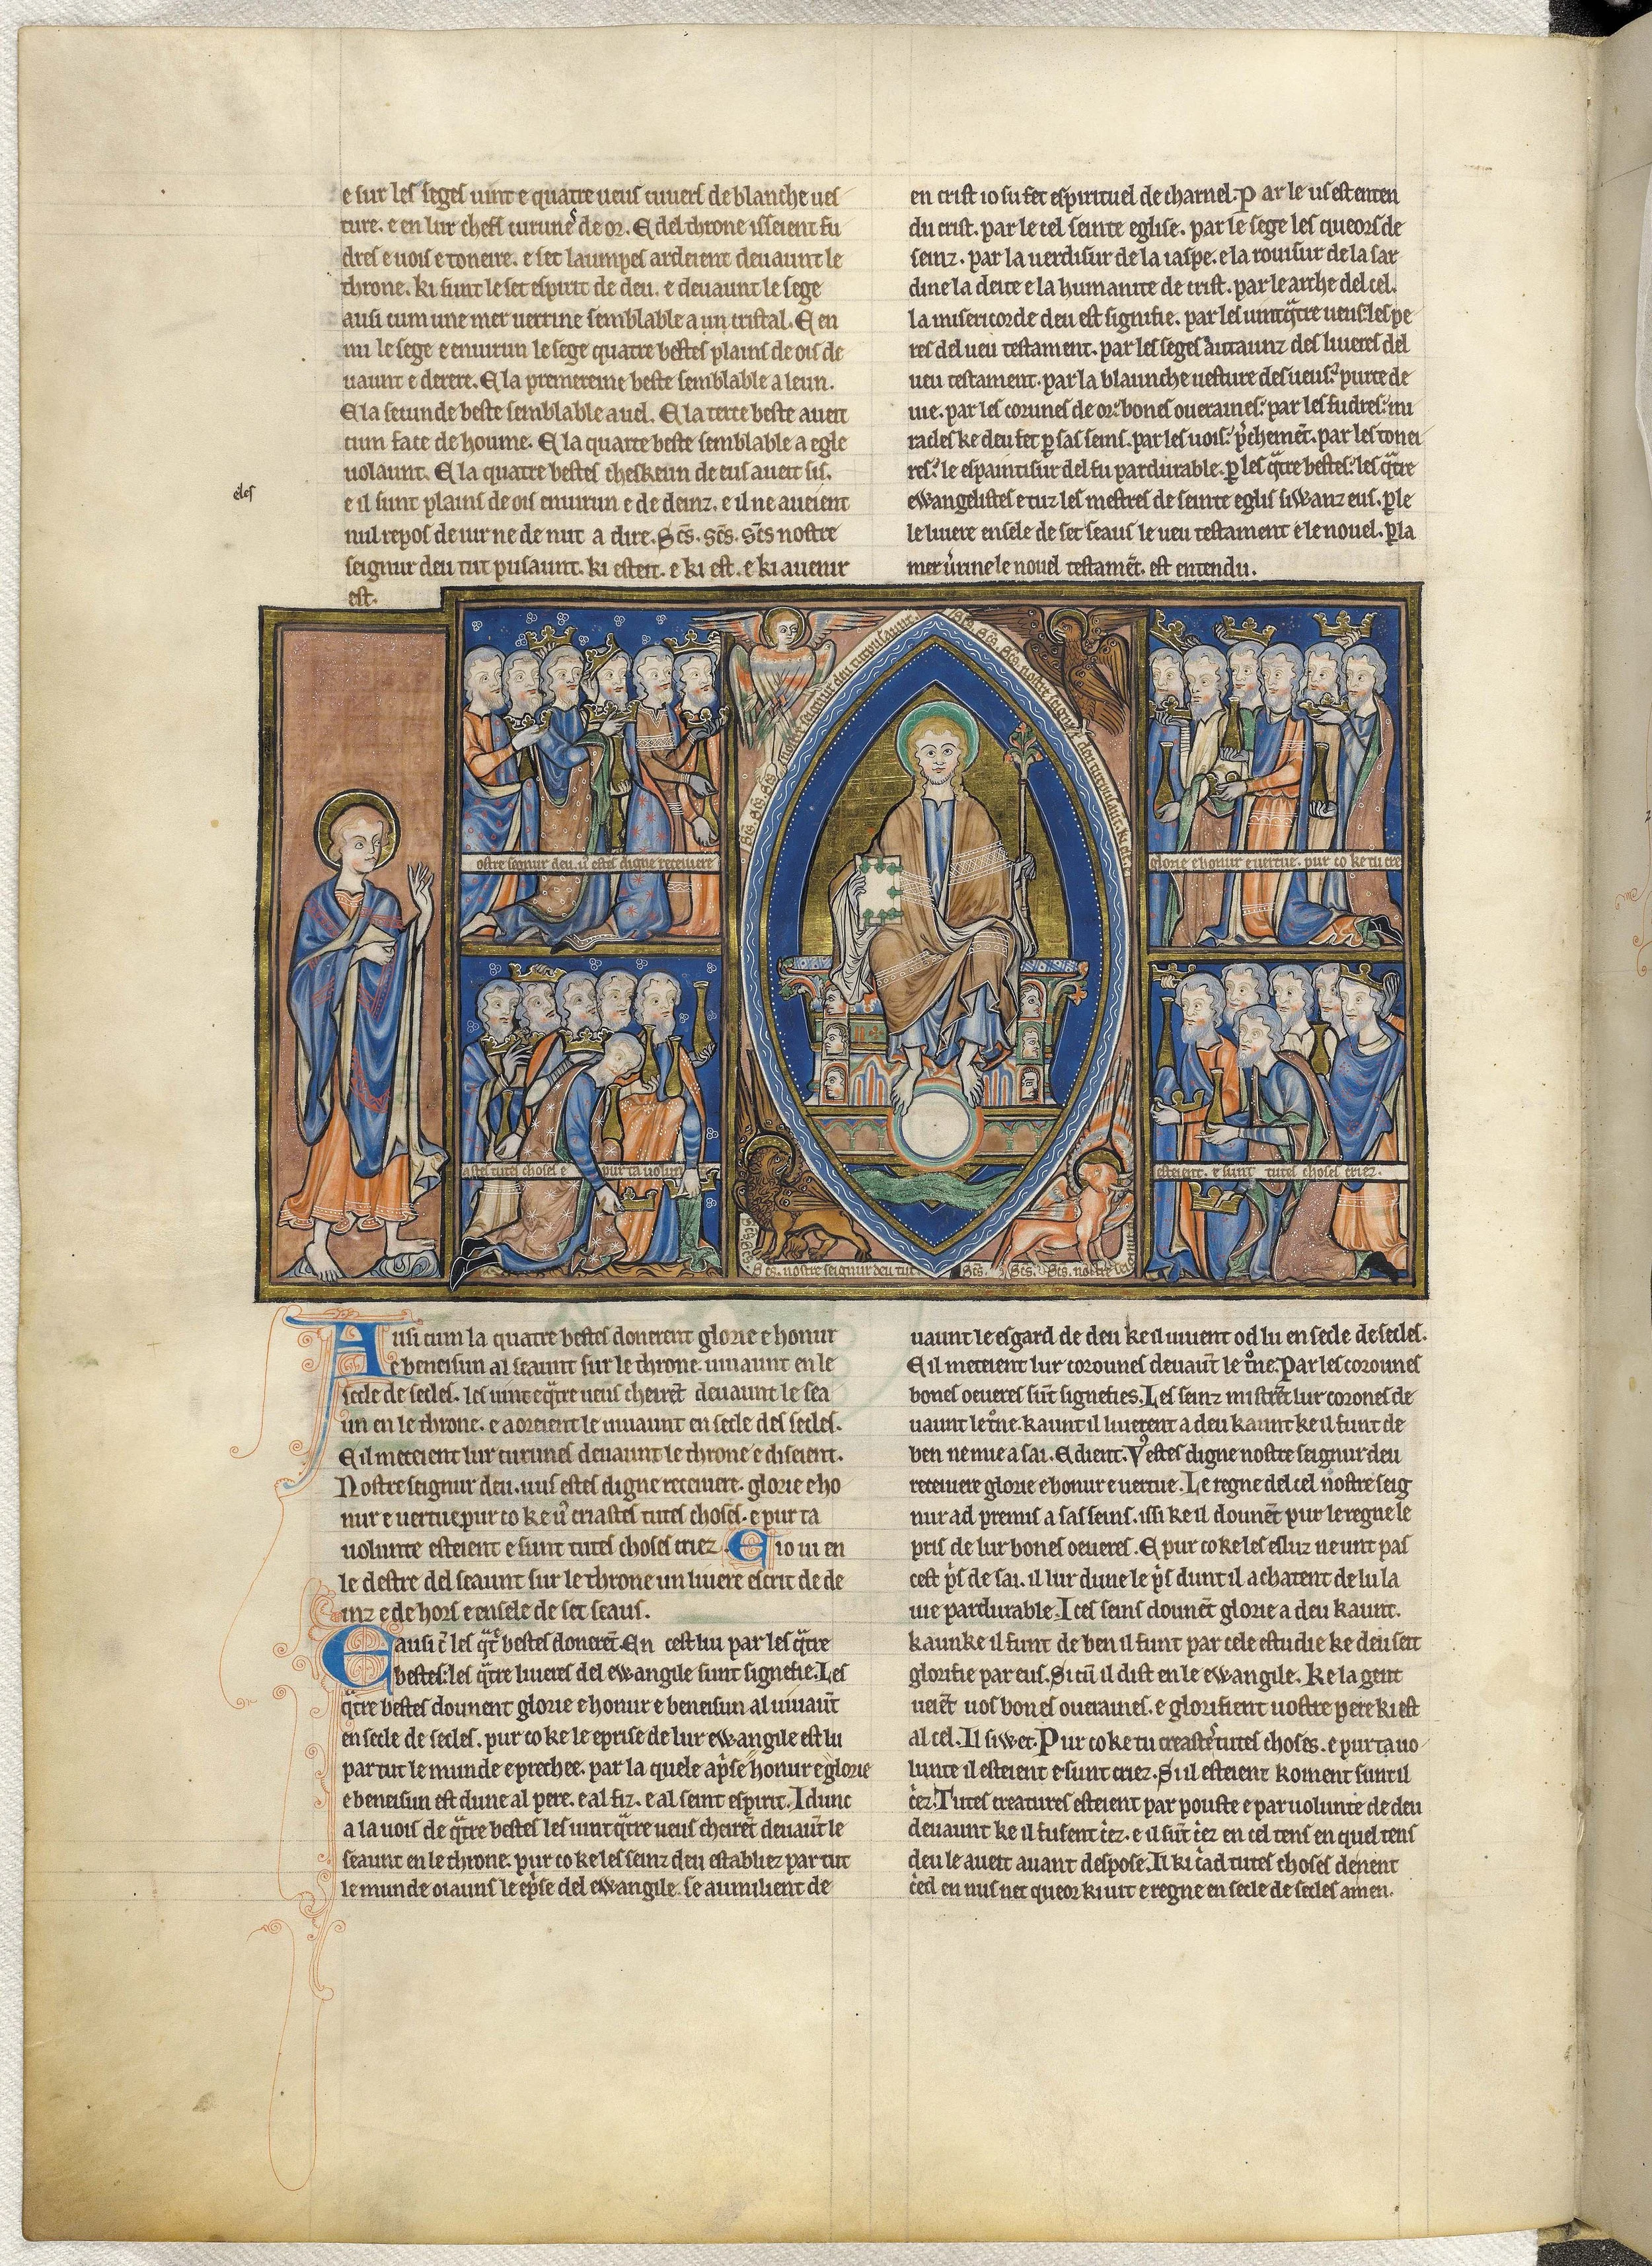 e sur les seges uint e quatre ueus cuuers de blanche ues
ture. e en lur chefs curunes de or. E del throne isseient fu
dres e uois e toneire. e set laumpes ardeient deuaunt le
throne. ki sunt le set espirit de deu. e deuaunt le sege
ausi cum une mer uerrine semblable a un cristal. E en
mi le sege e enuirun le sege quatre bestes plains de ois de
uaunt e derere. E la premereine beste semblable a leun.
E la secunde beste semblable a uel. E la terce beste aueit
cum face de houme. E la quarte beste semblable a egle
uolaunt. E la quatre bestes cheskeun de eus aueit sis.
eles
e il sunt plains de ois enuirun e de deinz. e il ne aueient
nul repos de iur ne de nut a dire. Sc̄s. Sc̄s. Sc̄s nostre
seignur deu tut pusaunt. ki esteit. e ki est. e ki auenir
est.
en crist io su fet espirituel de charnel. Par le us est enten
du crist. par le cel seinte eglise. par le sege les queors de
seinz. par la uerdisur de la iaspe. e la rouisur de la sar
dine la deite e la humanite de crist. par le arche del cel.
la misericorde deu est signifie. par les uint q̄tre ueus: les pe
res del ueu testament. par les seges autaunz des liueres del
ueu testament. par la blaunche uesture des ueus: purte de
uie. par les corunes de or: bones oueraines: par les fudres: mi
racles ke deu fet p̱ sas seins. par les uois: p̄chemēt. par les tonei
res: le espaintisur del fu pardurable. p̱ les q̄tre bestes: les q̄tre
ewangelistes e tuz les mestres de seinte eglis siwanz eus. p̱ le
le liuere ensele de set seaus le ueu testament e le nouel. p̱ la
mer urine le nouel testamēt. est entendu.
Sc̄s. Sc̄s. Sc̄s. nostre seignur deu tut pusaunt.
Sc̄s. Sc̄s. Sc̄s. nostre seignur deu tut pusaunt. ki est.
ostre seignur deu. u estes digne receiuere
glorie e honur e uertue. pur co ke tu cre
astes tutes choses e pur ta uolun te
esteient. e sunt tutes choses criez.
Sc̄s. Sc̄s. Sc̄s. nostre seignur deu tut
Sc̄s. Sc̄s. Sc̄s. nostre seignur
Ausi cum la quatre bestes donerent glorie e honur
e beneisun al seaunt sur le throne. uiuaunt en le
secle de secles. les uint e q̄tre ueus cheirēt deuaunt le sea
un en le throne. e aoreient le uiuaunt en secle des secles.
E il meteient lur curunes deuaunt le throne e diseient.
Nostre seignur deu. uus estes digne receiuere. glorie e ho
nur e uertue pur co ke u' criastes tutes choses. e pur ta
uolunte esteient e sunt tutes choses criez. E io ui en
le destre del seaunt sur le throne un liuere escrit de de
inz e de hors e ensele de set seaus.
E ausi c̄ les q̄tre bestes donerēt. En cest liu par les q̄tre
bestes: les q̄tre liueres del ewangile sunt signefie. Les
q̄tre bestes dounent glorie e honur e beneisun al uiuaūt
en secle de secles. pur co ke le eprise de lur ewangile est lu
par tut le munde e prechee. par la quele ap̄se honur e glorie
e beneisun est dune al pere. e al fiz. e al seint espirit. Idunc
a la uois de q̄tre bestes les uint q̄tre ueus cheirēt deuaūt le
seaunt en le throne. pur co ke les seinz deu establiez par tut
le munde oiauns le ep̄se del ewangile. se aumilient de
uaunt le esgard de deu ke il uiuent od lu en secle de secles.
E il meteient lur corounes deuaūt le t̊ne. Par les corounes
bones oeueres sūt signefies. Les seinz mistrēt lur corones de
uaunt le t̊ne. kaunt il liuerent a deu kaunt ke il funt de
ben ne mie a sai. E dient. V' estes digne nostre seignur deu
receiuere glorie e honur e uertue. Le regne del cel nostre seig
nur ad premis a sas seins. issi ke il dounēt pur le regne le
pris de lur bones oeueres. E pur co ke les esluz ne unt pas
cest p̄s de sai. il lur dune le p̄s dunt il achatent de lu la
uie pardurable. I ces seins dounēt glorie a deu kaunt.
kaunke il funt de ben il funt par cele estudie ke deu seit
glorifie par eus. Si cū il dist en le ewangile. Ke la gent
ueiēt uos bones oueraines. e glorifient uostre pere ki est
al cel. Il siwet. Pur co ke tu creastes tutes choses. e pur ta uo
lunte il esteient e sunt criez. Si il esteient koment sunt il
c̊ez. Tutes creatures esteient par pouste e par uolunte de deu
deuaunt ke il fusent c̊ez. e il sūt c̊ez en cel tens en quel tens
deu le aueit auant despose. Il ki c̊ad tutes choses denent
c̊ed en nus net queor ki uit e regne en secle de secles amen.